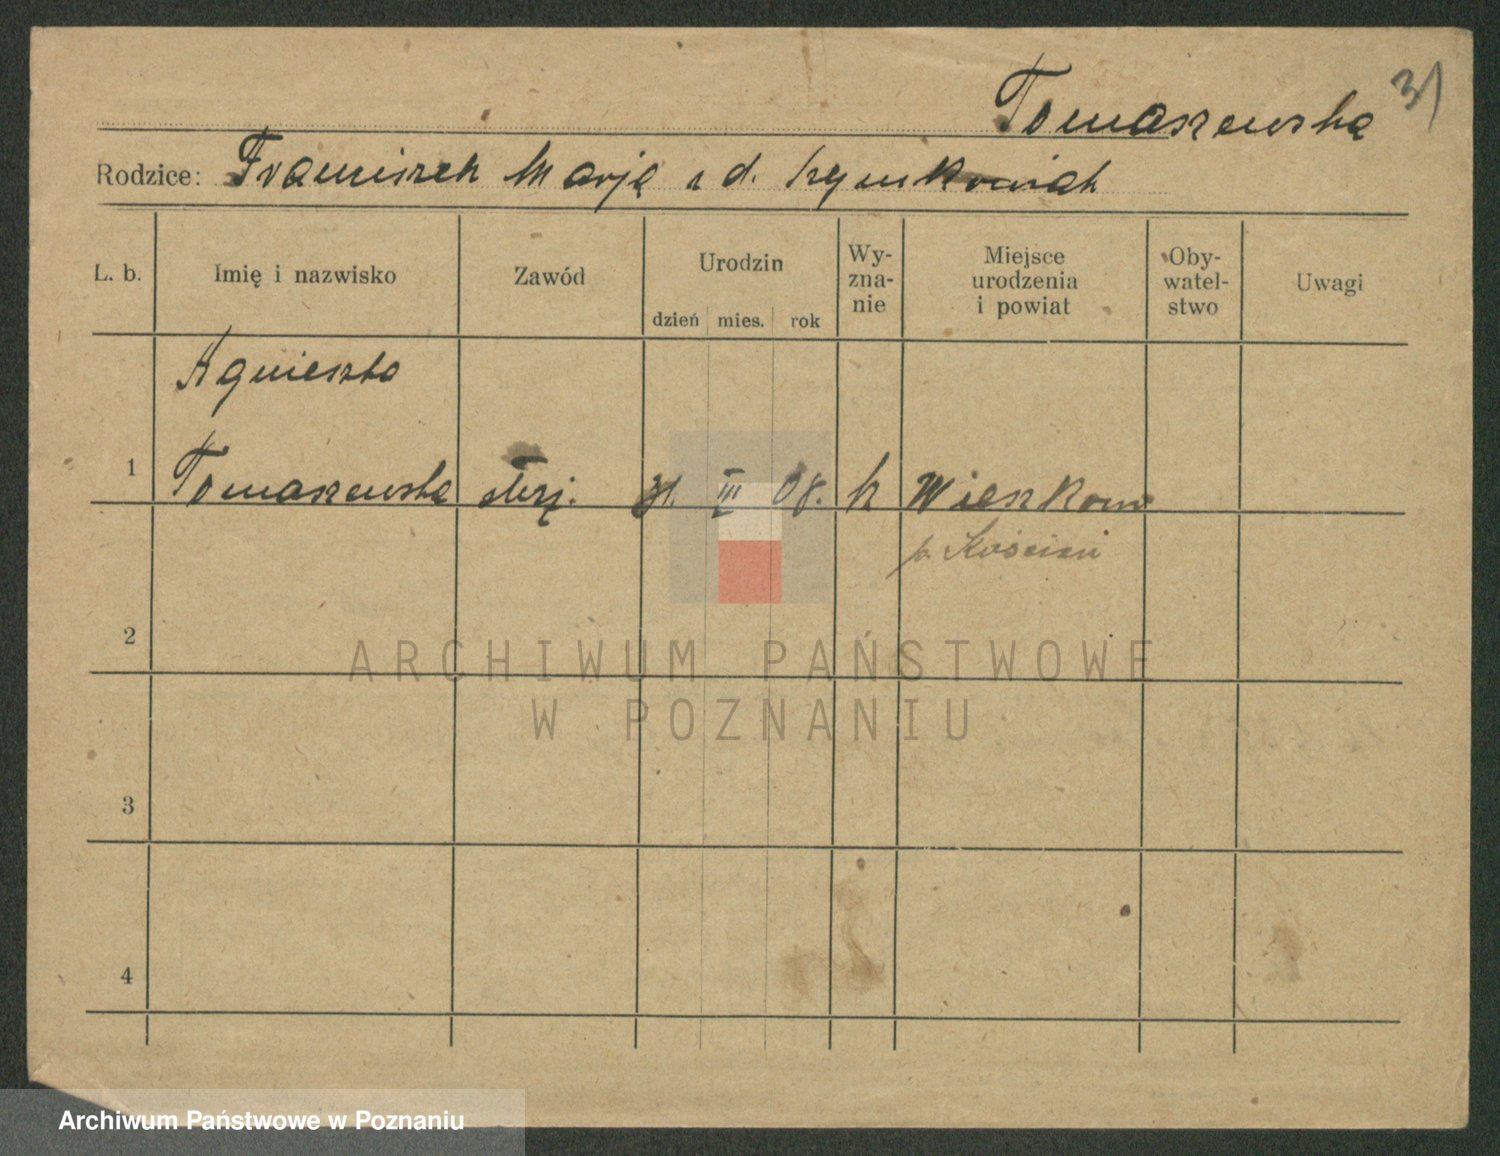 Tomaszewska 31
Rodzice: Franciszek Marja z d. Szymkowiak
L. b. Imię i nazwisko Zawód Urodzin dzień mies. rok Wyznanie Miejsce urodzenia i powiat Obywatelstwo Uwagi
Agnieszka
1 Tomaszewska służ. 31. III 08. k Wieszkowo
p. Kościan
2
ARCHIWUM PAŃSTWOWE
W POZNANIU
3
4
Archiwum Państwowe w Poznaniu